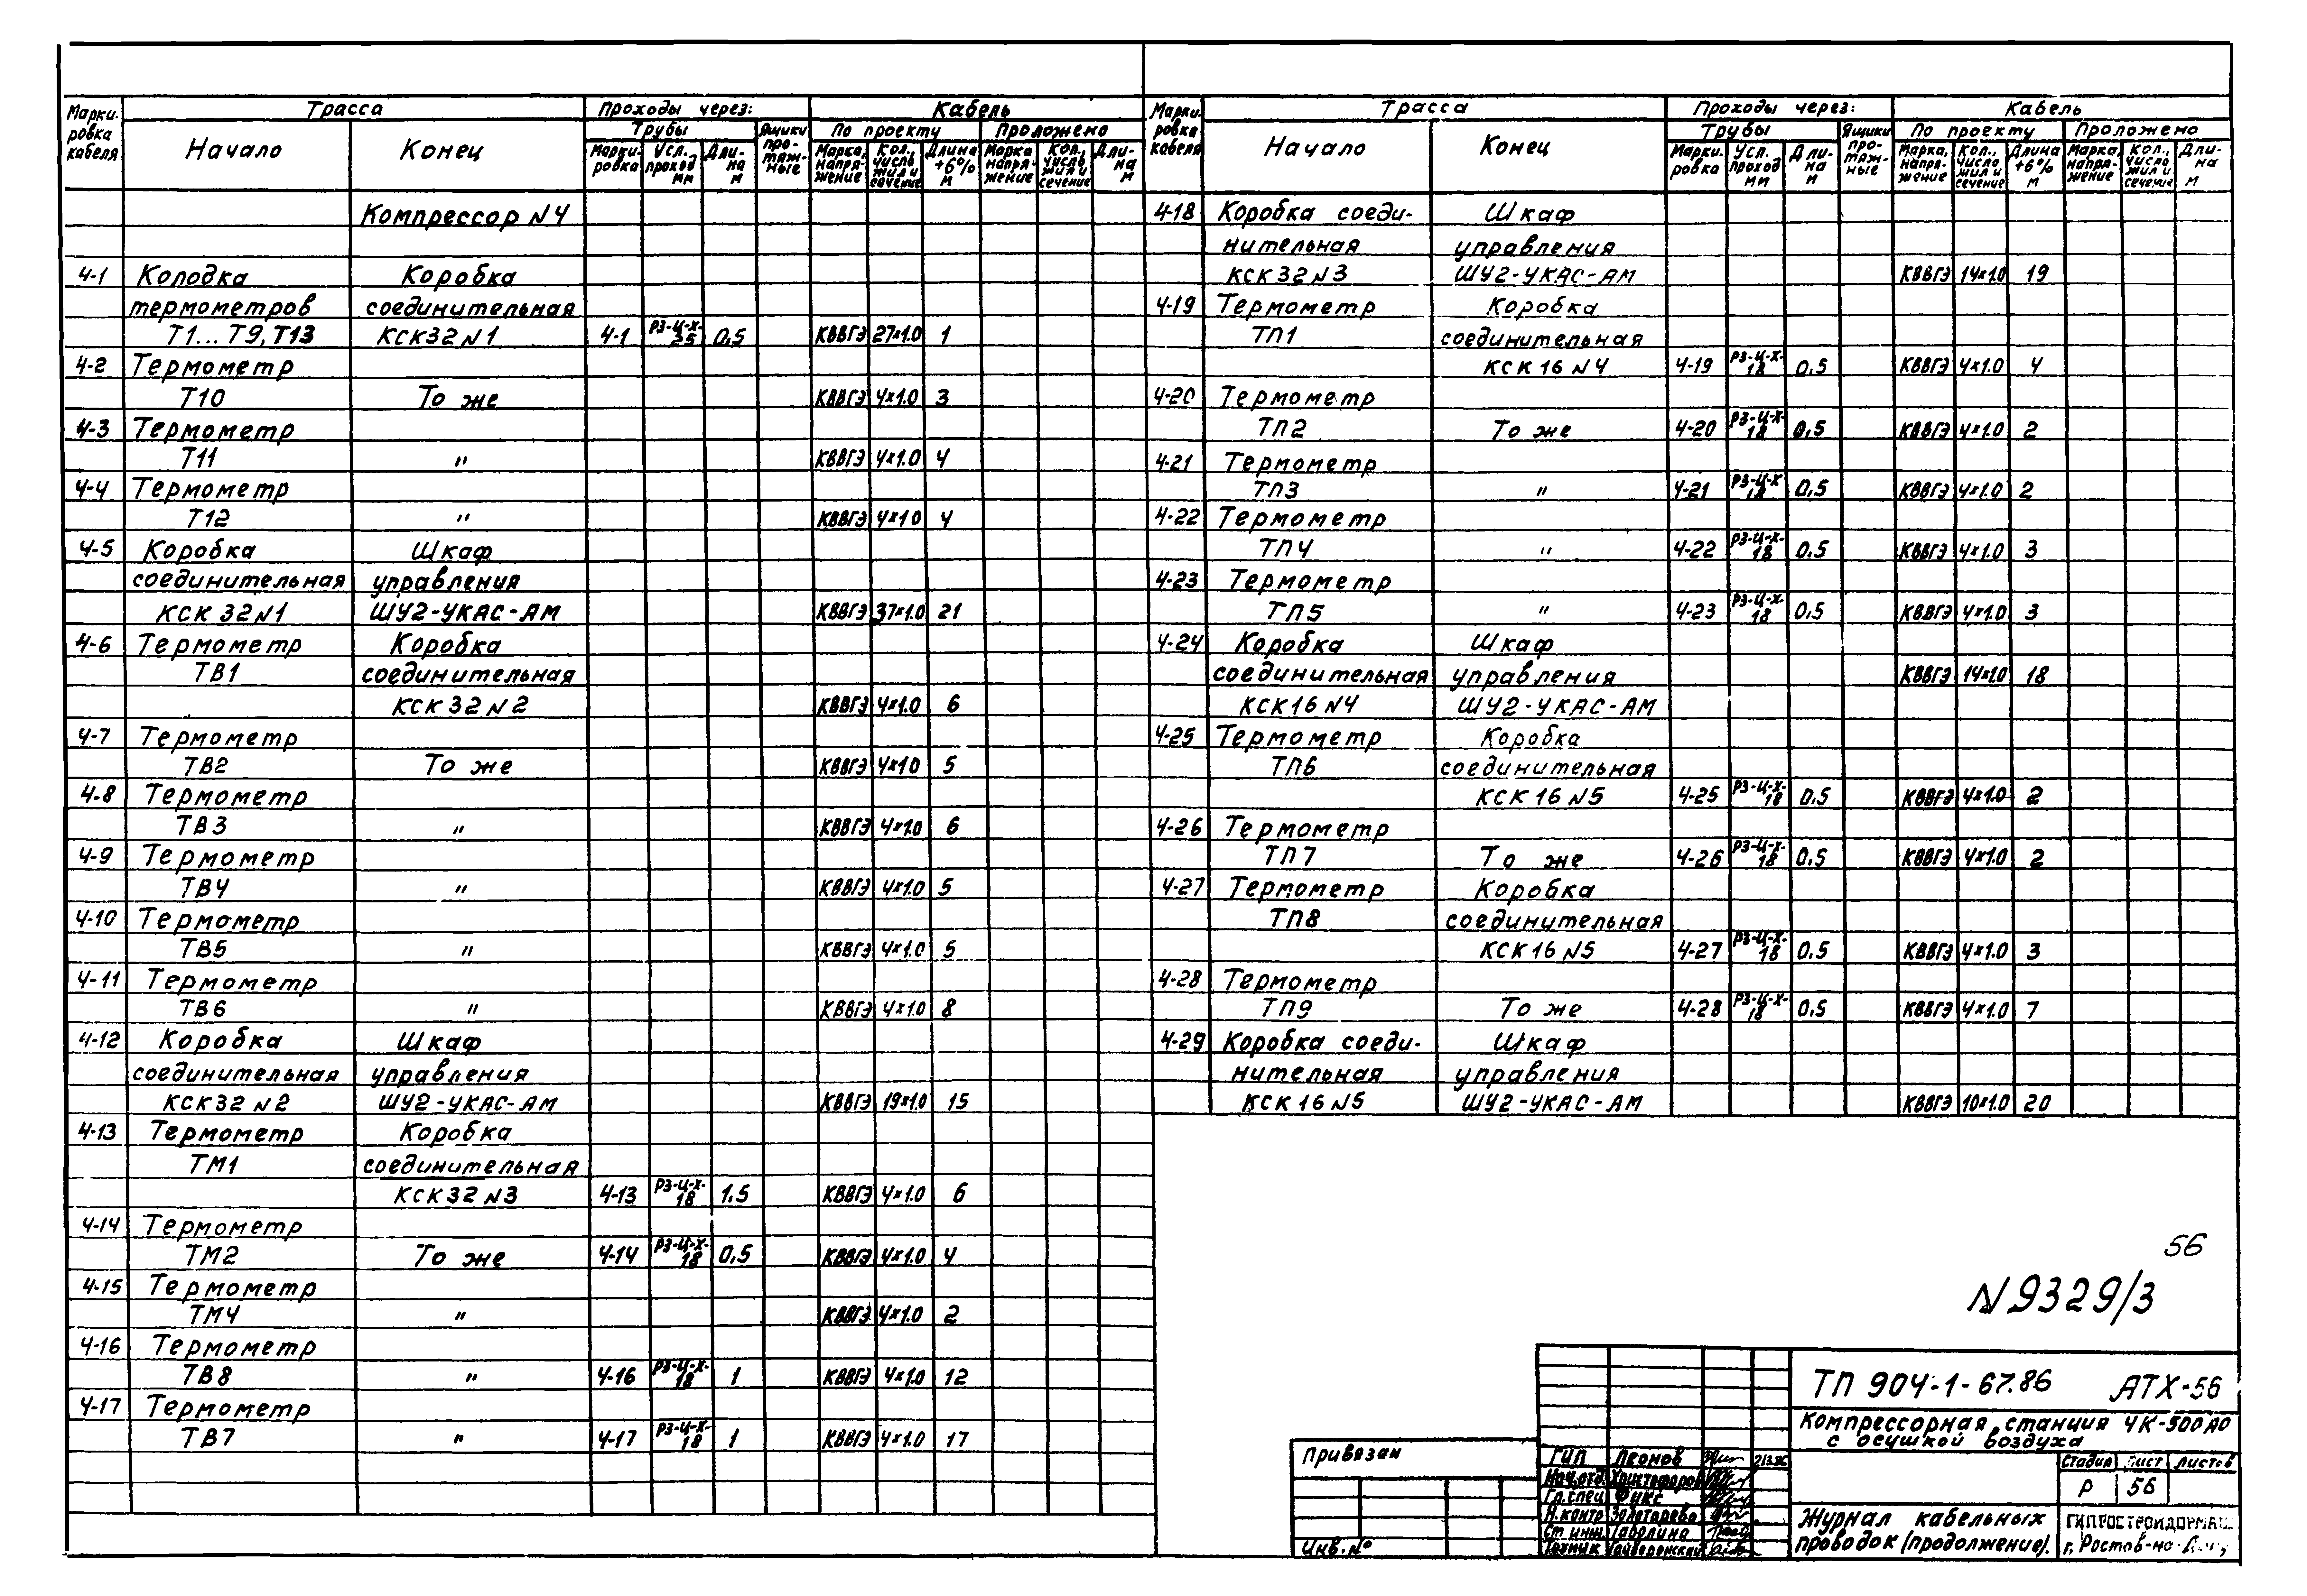 Марки- ровка кабеля Трасса Проходы через: Кабель
Начало Конец Трубы Ящики про- тяж- ные По проекту Проложено
Марки- ровка Усл. проход мм Дли- на м Марка, напря- жение Кол., число жил и сечение Длина +6% м Марка напря- жение Кол., число жил и сечение Дли- на м
Компрессор N4
4-1 Колодка Коробка
термометров соединительная
Т1... Т9, Т13 КСК32 N1 4-1 РЗ-Ц-Х-25 0,5 КВВГЭ 27×1.0 1
4-2 Термометр
Т10 То же КВВГЭ 4×1.0 3
4-3 Термометр
Т11 " КВВГЭ 4×1.0 4
4-4 Термометр
Т12 " КВВГЭ 4×1.0 4
4-5 Коробка Шкаф
соединительная управления
КСК 32 N1 ШУ2-УКАС-АМ КВВГЭ 37×1.0 21
4-6 Термометр Коробка
ТВ1 соединительная
КСК 32 N2 КВВГЭ 4×1.0 6
4-7 Термометр
ТВ2 То же КВВГЭ 4×1.0 5
4-8 Термометр
ТВ3 " КВВГЭ 4×1.0 6
4-9 Термометр
ТВ4 " КВВГЭ 4×1.0 5
4-10 Термометр
ТВ5 " КВВГЭ 4×1.0 5
4-11 Термометр
ТВ6 " КВВГЭ 4×1.0 8
4-12 Коробка Шкаф
соединительная управления
КСК32 N2 ШУ2-УКАС-АМ КВВГЭ 19×1.0 15
4-13 Термометр Коробка
ТМ1 соединительная
КСК32 N3 4-13 РЗ-Ц-Х-18 1.5 КВВГЭ 4×1.0 6
4-14 Термометр
ТМ2 То же 4-14 РЗ-Ц-Х-18 0,5 КВВГЭ 4×1.0 4
4-15 Термометр
ТМ4 " КВВГЭ 4×1.0 2
4-16 Термометр
ТВ8 " 4-16 РЗ-Ц-Х-18 1 КВВГЭ 4×1.0 12
4-17 Термометр
ТВ7 " 4-17 РЗ-Ц-Х-18 1 КВВГЭ 4×1.0 17
Марки- ровка кабеля Трасса Проходы через: Кабель
Начало Конец Трубы Ящики про- тяж- ные По проекту Проложено
Марки- ровка Усл. проход мм Дли- на м Марка, напря- жение Кол., число жил и сечение Длина +6% м Марка, напря- жение Кол., число жил и сечение Дли- на м
4-18 Коробка соеди- Шкаф
нительная управления
КСК 32 N3 ШУ2-УКАС-АМ КВВГЭ 14×1.0 19
4-19 Термометр Коробка
ТП1 соединительная
КСК 16 N4 4-19 РЗ-Ц-Х-18 0.5 КВВГЭ 4×1.0 4
4-20 Термометр
ТП2 То же 4-20 РЗ-Ц-Х-18 0,5 КВВГЭ 4×1.0 2
4-21 Термометр
ТП3 " 4-21 РЗ-Ц-Х 18 0,5 КВВГЭ 4×1.0 2
4-22 Термометр
ТП4 " 4-22 РЗ-Ц-Х-18 0.5 КВВГЭ 4×1.0 3
4-23 Термометр
ТП5 " 4-23 РЗ-Ц-Х-18 0.5 КВВГЭ 4×1.0 3
4-24 Коробка Шкаф
соединительная управления КВВГЭ 14×1.0 18
КСК16 N4 ШУ2-УКАС-АМ
4-25 Термометр Коробка
ТП6 соединительная
КСК 16 N5 4-25 РЗ-Ц-Х-18 0.5 КВВГЭ 4×1.0 2
4-26 Термометр
ТП7 То же 4-26 РЗ-Ц-Х-18 0.5 КВВГЭ 4×1.0 2
4-27 Термометр Коробка
ТП8 соединительная
КСК 16 N5 4-27 РЗ-Ц-Х-18 0.5 КВВГЭ 4×1.0 3
4-28 Термометр
ТП9 То же 4-28 РЗ-Ц-Х-18 0.5 КВВГЭ 4×1.0 7
4-29 Коробка соеди- Шкаф
нительная управления
КСК 16 N5 ШУ2-УКАС-АМ КВВГЭ 10×1.0 20
56
N9329/3
ТП 904-1-67.86 АТХ-56
Компрессорная станция 4К-500АО
с осушкой воздуха
Привязан
Инв. №
ГИП Леонов
Нач.отд. Христофоров
Гл.спец Фикс
Н.контр Золотарева
Ст. инж. Гаволина
Техник Гайворонский
Стадия Лист Листов
Р 56
Журнал кабельных
проводок (продолжение).
ГИПРОСТРОЙДОРМАШ
г. Ростов-на-Дону